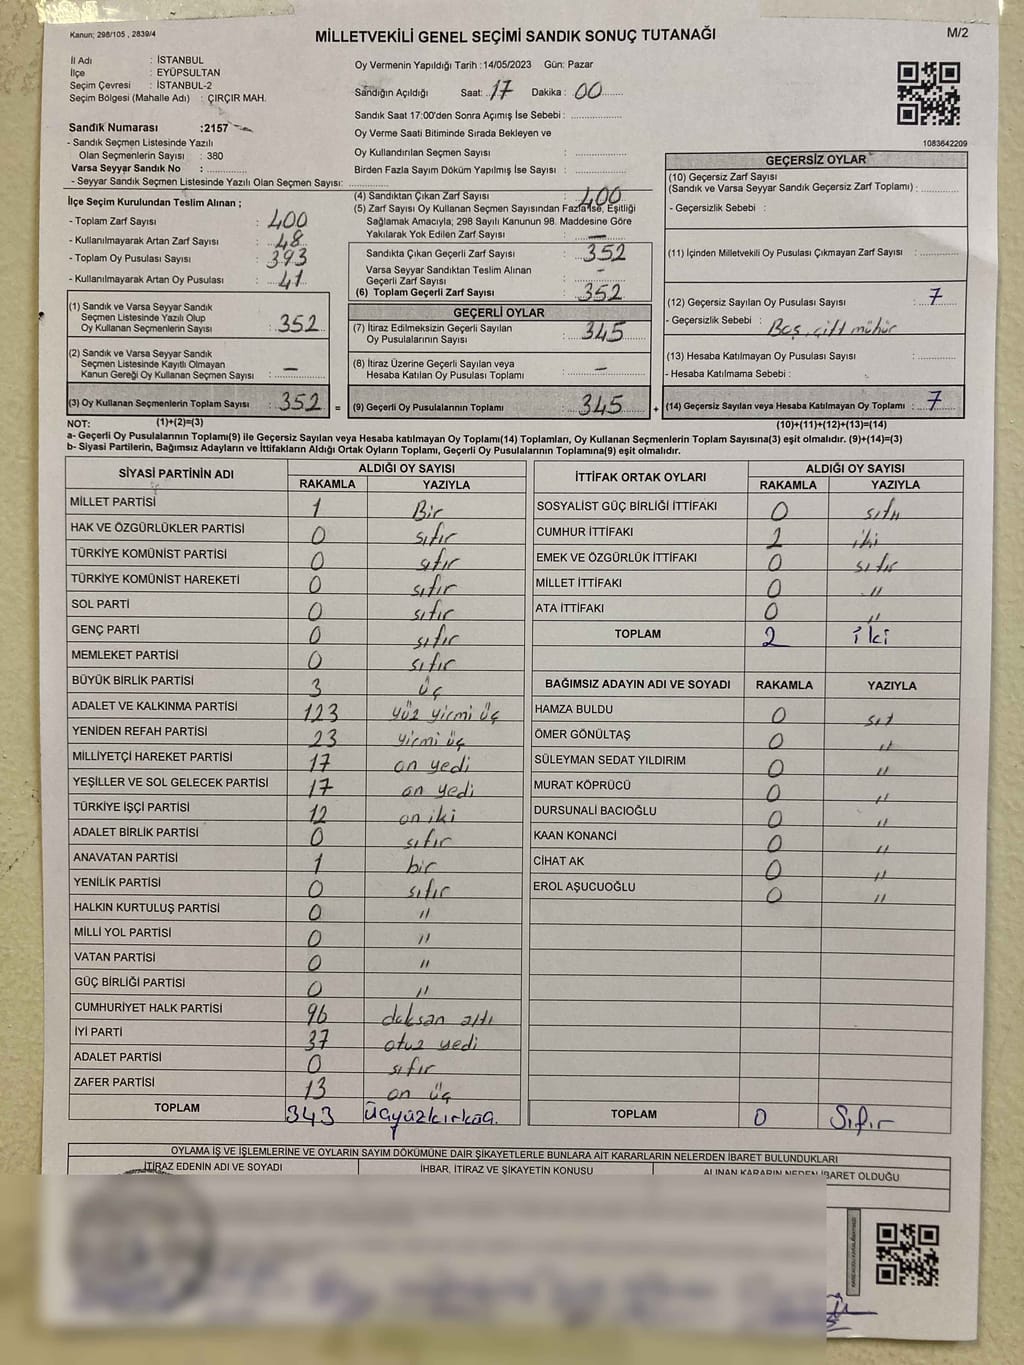 Kanun; 298/105 , 2839/4
MİLLETVEKİLİ GENEL SEÇİMİ SANDIK SONUÇ TUTANAĞI
M/2
İl Adı : İSTANBUL
İlçe : EYÜPSULTAN
Seçim Çevresi : İSTANBUL-2
Seçim Bölgesi (Mahalle Adı) : ÇIRÇIR MAH.
Sandık Numarası :2157
- Sandık Seçmen Listesinde Yazılı
Olan Seçmenlerin Sayısı : 380
Varsa Seyyar Sandık No :
- Seyyar Sandık Seçmen Listesinde Yazılı Olan Seçmen Sayısı:
Oy Vermenin Yapıldığı Tarih :14/05/2023 Gün: Pazar
Sandığın Açıldığı Saat: 17 Dakika : 00
Sandık Saat 17:00'den Sonra Açımış İse Sebebi :
Oy Verme Saati Bitiminde Sırada Bekleyen ve
Oy Kullandırılan Seçmen Sayısı :
Birden Fazla Sayım Döküm Yapılmış İse Sayısı :
1083642209
İlçe Seçim Kurulundan Teslim Alınan ;
- Toplam Zarf Sayısı : 400
- Kullanılmayarak Artan Zarf Sayısı : 48
- Toplam Oy Pusulası Sayısı : 393
- Kullanılmayarak Artan Oy Pusulası : 41
(1) Sandık ve Varsa Seyyar Sandık
Seçmen Listesinde Yazılı Olup
Oy Kullanan Seçmenlerin Sayısı : 352
(2) Sandık ve Varsa Seyyar Sandık
Seçmen Listesinde Kayıtlı Olmayan
Kanun Gereği Oy Kullanan Seçmen Sayısı : –
(3) Oy Kullanan Seçmenlerin Toplam Sayısı : 352 =
(1)+(2)=(3)
(4) Sandıktan Çıkan Zarf Sayısı : 400
(5) Zarf Sayısı Oy Kullanan Seçmen Sayısından Fazla İse, Eşitliği
Sağlamak Amacıyla; 298 Sayılı Kanunun 98. Maddesine Göre
Yakılarak Yok Edilen Zarf Sayısı : –
Sandıkta Çıkan Geçerli Zarf Sayısı : 352
Varsa Seyyar Sandıktan Teslim Alınan
Geçerli Zarf Sayısı : –
(6) Toplam Geçerli Zarf Sayısı : 352
GEÇERLİ OYLAR
(7) İtiraz Edilmeksizin Geçerli Sayılan
Oy Pusulalarının Sayısı : 345
(8) İtiraz Üzerine Geçerli Sayılan veya
Hesaba Katılan Oy Pusulası Toplamı : –
(9) Geçerli Oy Pusulalarının Toplamı : 345 +
GEÇERSİZ OYLAR
(10) Geçersiz Zarf Sayısı
(Sandık ve Varsa Seyyar Sandık Geçersiz Zarf Toplamı) :
- Geçersizlik Sebebi :
(11) İçinden Milletvekili Oy Pusulası Çıkmayan Zarf Sayısı :
(12) Geçersiz Sayılan Oy Pusulası Sayısı : 7
- Geçersizlik Sebebi : Boş, çift mühür
(13) Hesaba Katılmayan Oy Pusulası Sayısı :
- Hesaba Katılmama Sebebi :
(14) Geçersiz Sayılan veya Hesaba Katılmayan Oy Toplamı : 7
(10)+(11)+(12)+(13)=(14)
NOT:
a- Geçerli Oy Pusulalarının Toplamı(9) ile Geçersiz Sayılan veya Hesaba katılmayan Oy Toplamı(14) Toplamları, Oy Kullanan Seçmenlerin Toplam Sayısına(3) eşit olmalıdır. (9)+(14)=(3)
b- Siyasi Partilerin, Bağımsız Adayların ve İttifakların Aldığı Ortak Oyların Toplamı, Geçerli Oy Pusulalarının Toplamına(9) eşit olmalıdır.
SİYASİ PARTİNİN ADI ALDIĞI OY SAYISI
RAKAMLA YAZIYLA
MİLLET PARTİSİ 1 Bir
HAK VE ÖZGÜRLÜKLER PARTİSİ 0 sıfır
TÜRKİYE KOMÜNİST PARTİSİ 0 sıfır
TÜRKİYE KOMÜNİST HAREKETİ 0 sıfır
SOL PARTİ 0 sıfır
GENÇ PARTİ 0 sıfır
MEMLEKET PARTİSİ 0 sıfır
BÜYÜK BİRLİK PARTİSİ 3 üç
ADALET VE KALKINMA PARTİSİ 123 yüz yirmi üç
YENİDEN REFAH PARTİSİ 23 yirmi üç
MİLLİYETÇİ HAREKET PARTİSİ 17 on yedi
YEŞİLLER VE SOL GELECEK PARTİSİ 17 on yedi
TÜRKİYE İŞÇİ PARTİSİ 12 on iki
ADALET BİRLİK PARTİSİ 0 sıfır
ANAVATAN PARTİSİ 1 bir
YENİLİK PARTİSİ 0 sıfır
HALKIN KURTULUŞ PARTİSİ 0 "
MİLLİ YOL PARTİSİ 0 "
VATAN PARTİSİ 0 "
GÜÇ BİRLİĞİ PARTİSİ 0 "
CUMHURİYET HALK PARTİSİ 96 doksan altı
İYİ PARTİ 37 otuz yedi
ADALET PARTİSİ 0 sıfır
ZAFER PARTİSİ 13 on üç
TOPLAM 343 üçyüzkırküç.
İTTİFAK ORTAK OYLARI ALDIĞI OY SAYISI
RAKAMLA YAZIYLA
SOSYALİST GÜÇ BİRLİĞİ İTTİFAKI 0 sıfır
CUMHUR İTTİFAKI 2 iki
EMEK VE ÖZGÜRLÜK İTTİFAKI 0 sıfır
MİLLET İTTİFAKI 0 "
ATA İTTİFAKI 0 "
TOPLAM 2 iki
BAĞIMSIZ ADAYIN ADI VE SOYADI RAKAMLA YAZIYLA
HAMZA BULDU 0
ÖMER GÖNÜLTAŞ 0 "
SÜLEYMAN SEDAT YILDIRIM 0 "
MURAT KÖPRÜCÜ 0 "
DURSUNALİ BACIOĞLU 0 "
KAAN KONANCİ 0 "
CİHAT AK 0 "
EROL AŞUCUOĞLU 0 "
TOPLAM 0 Sıfır
OYLAMA İŞ VE İŞLEMLERİNE VE OYLARIN SAYIM DÖKÜMÜNE DAİR ŞİKAYETLERLE BUNLARA AİT KARARLARIN NELERDEN İBARET BULUNDUKLARI
İTİRAZ EDENİN ADI VE SOYADI İHBAR, İTİRAZ VE ŞİKAYETİN KONUSU ALINAN KARARIN NEDEN İBARET OLDUĞU